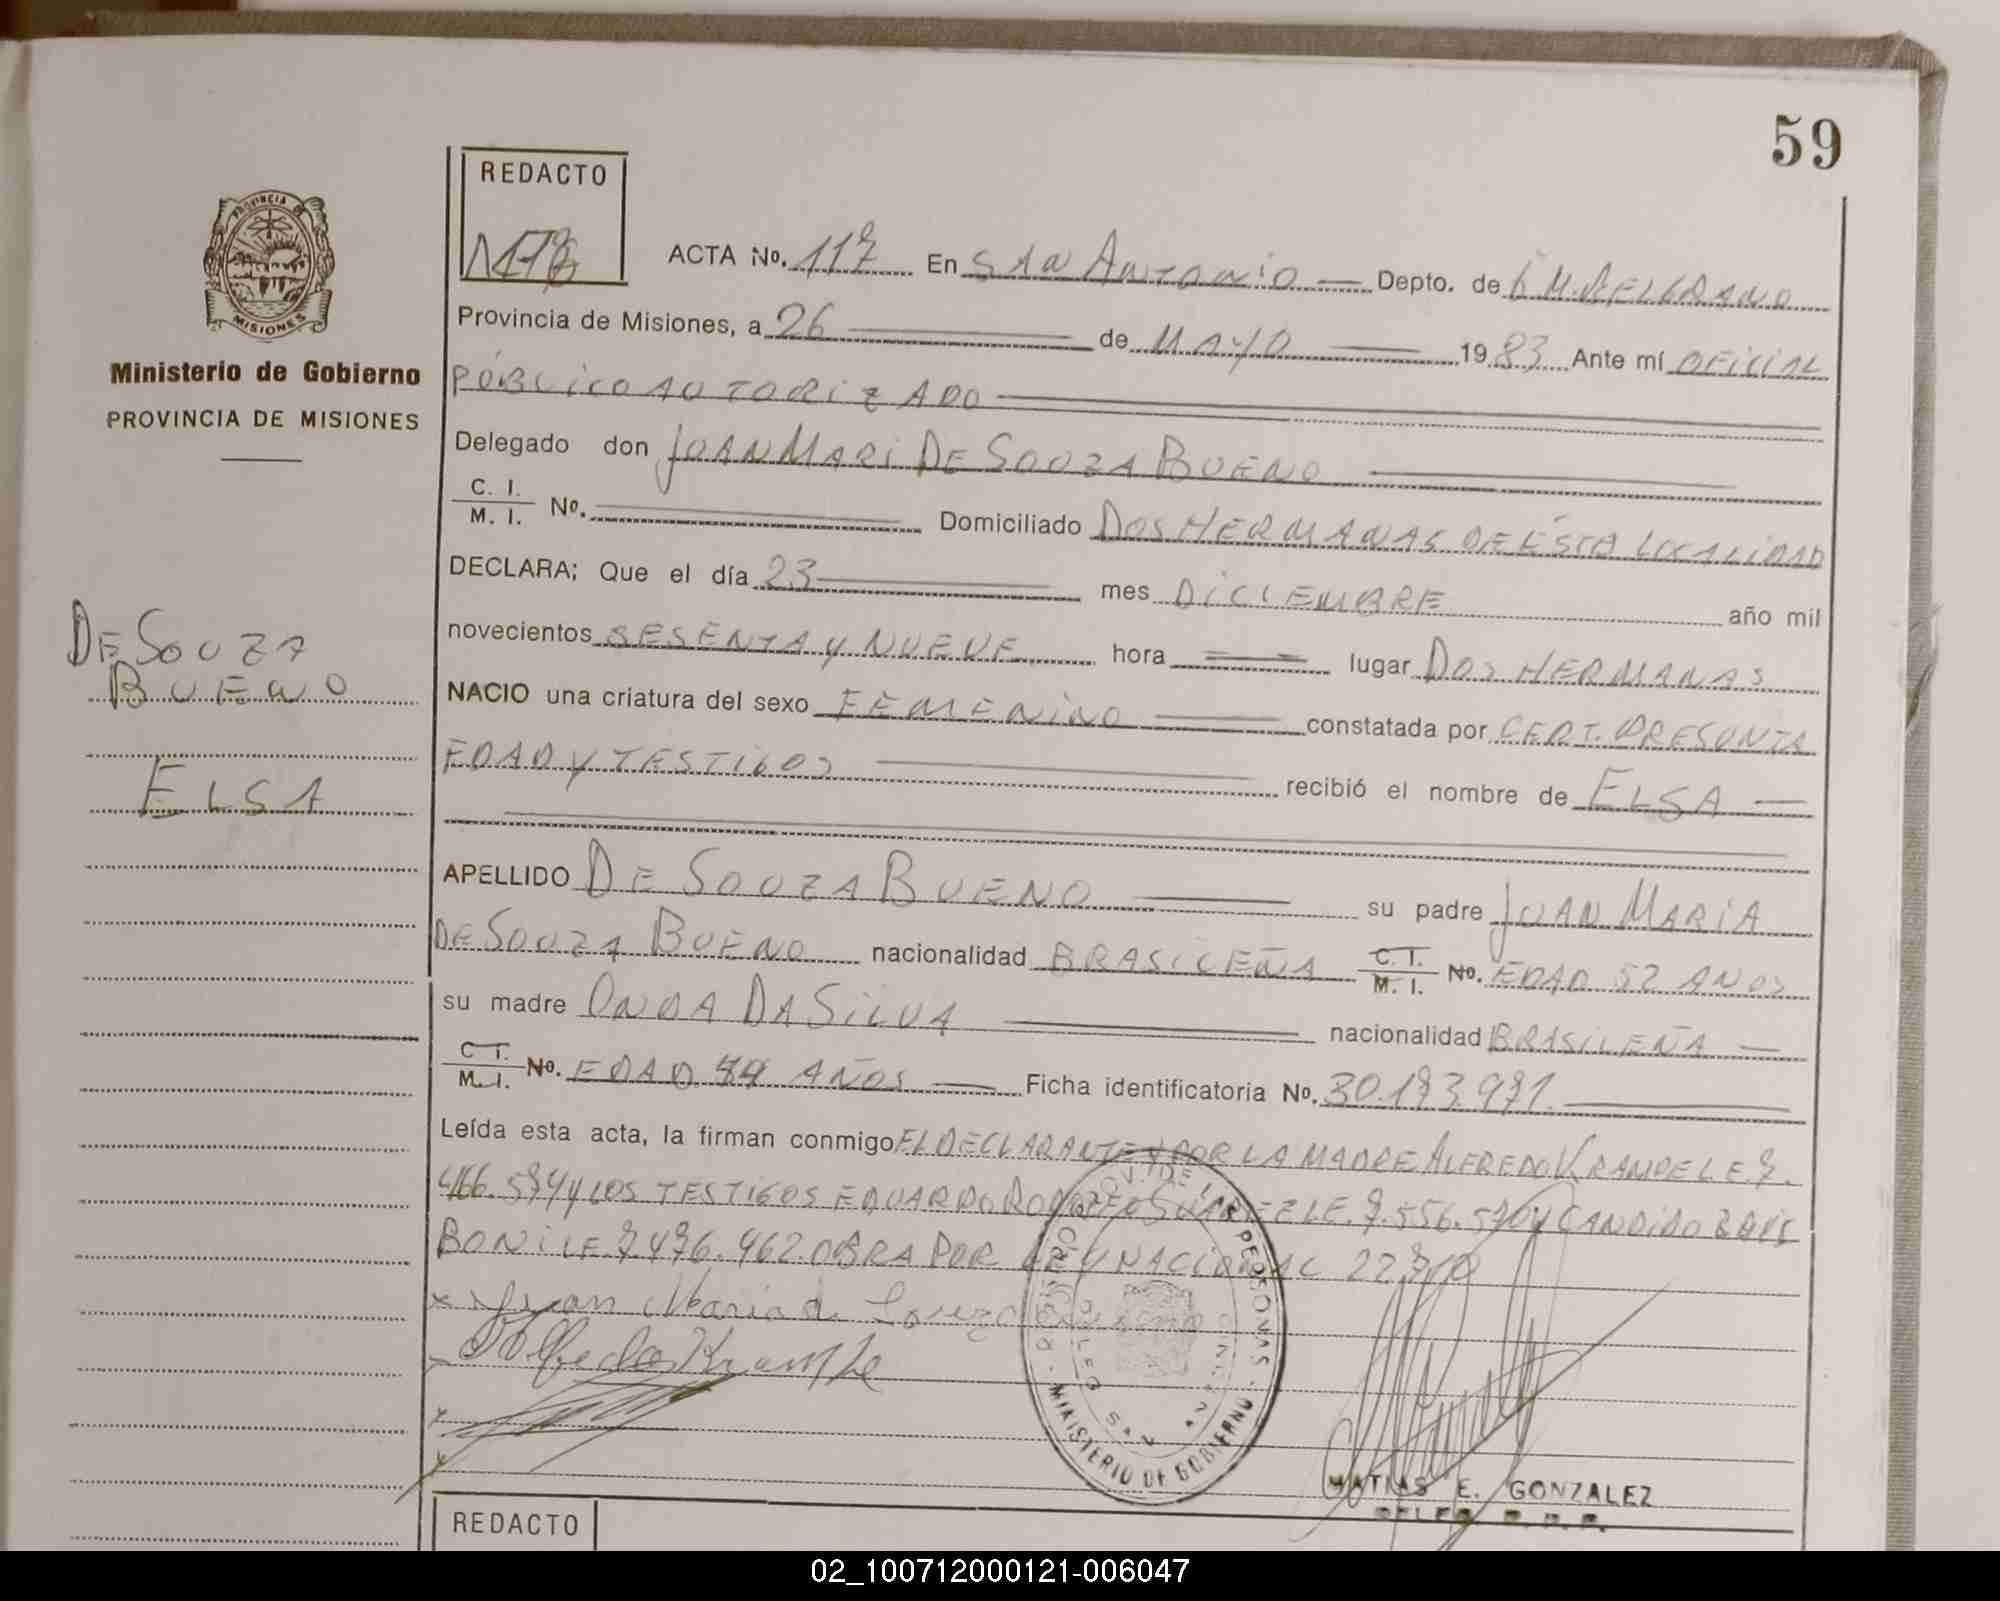 59
REDACTO
PROVINCIA DE
MISIONES
Ministerio de Gobierno
PROVINCIA DE MISIONES
DE SOUZA
BUENO
ELSA
ACTA No. 117 En SAN ANTONIO — Depto. de G M. BELGRANO
Provincia de Misiones, a 26 de MAYO 1983 Ante mí OFICIAL
PÚBLICO AUTORIZADO
Delegado don JUAN MARI DE SOUZA BUENO
C. I. / M. I. No. Domiciliado DOS HERMANAS DE ESTA LOCALIDAD
DECLARA; Que el día 23 mes DICIEMBRE año mil
novecientos SESENTA Y NUEVE hora lugar DOS HERMANAS
NACIO una criatura del sexo FEMENINO constatada por CERT. PRESUNTA
EDAD Y TESTIGOS recibió el nombre de ELSA —
APELLIDO DE SOUZA BUENO su padre JUAN MARIA
DE SOUZA BUENO nacionalidad BRASILEÑA C. I. / M. I. No. EDAD 52 AÑOS
su madre ONDA DA SILVA nacionalidad BRASILEÑA —
C. I. / M. I. No. EDAD AÑOS Ficha identificatoria No. 30.173.971.
Leída esta acta, la firman conmigo EL DECLARANTE Y POR LA MADRE ALFREDO KRAMPE L.E. 7.
466.574 Y LOS TESTIGOS EDUARDO SUAREZ L.E. 7.556.570 Y CANDIDO
BONI L E. 7.476.962. OBRA POR LEY NACIONAL
x Juan Maria de Souza Bueno
Alfredo Krampe
MINISTERIO DE GOBIERNO
MATIAS E. GONZALEZ
DELEG. R. P. P.
REDACTO
02_100712000121-006047